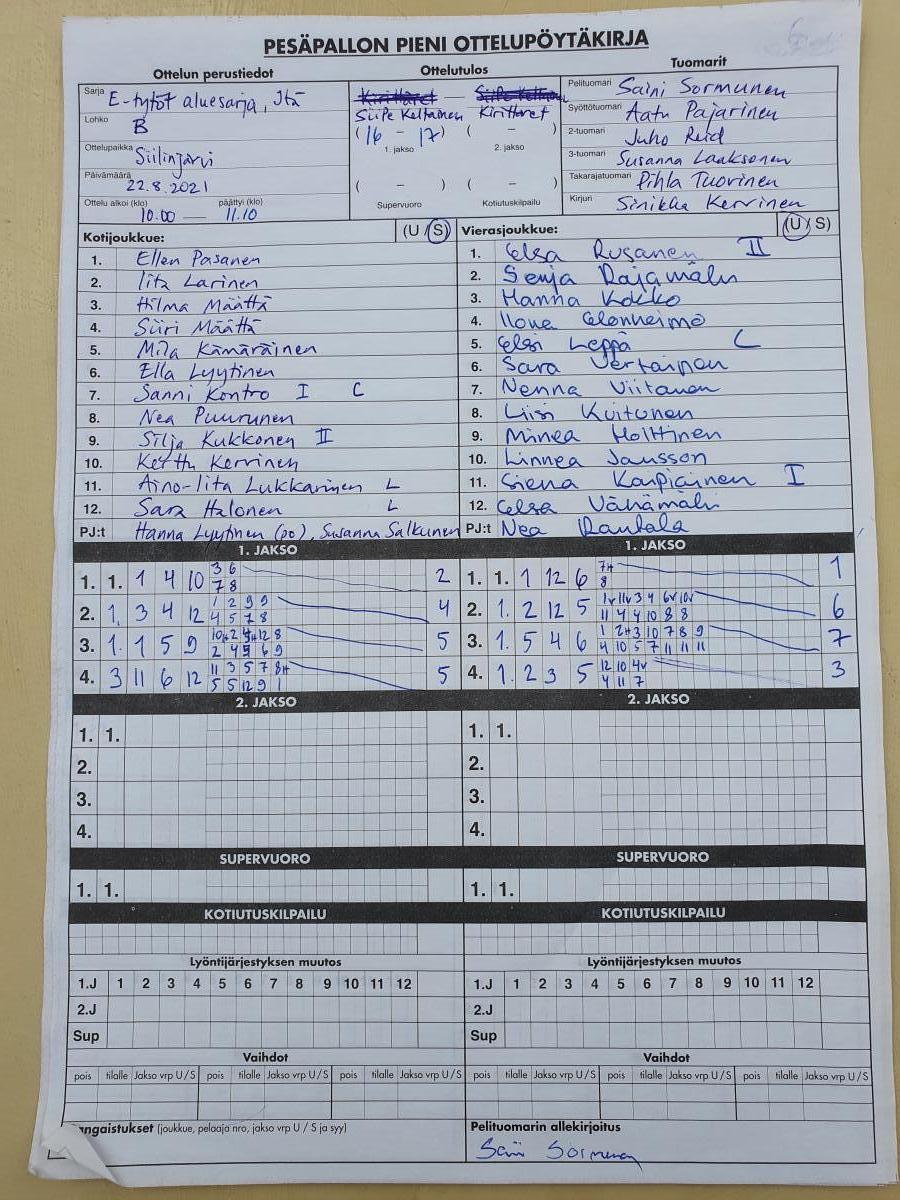 PESÄPALLON PIENI OTTELUPÖYTÄKIRJA
Ottelun perustiedot
Ottelutulos
Tuomarit
Sarja E-tytöt aluesarja, Itä
Lohko B
Ottelupaikka Siilinjärvi
Päivämäärä 22.8.2021
Ottelu alkoi (klo) päättyi (klo)
10.00 — 11.10
Kirittäret — SiiPe Keltainen
SiiPe Keltainen Kirittäret
(16 - 17) ( - )
1. jakso 2. jakso
( - ) ( - )
Supervuoro Kotiutuskilpailu
Pelituomari Saini Sormunen
Syöttötuomari Aatu Pajarinen
2-tuomari Juho Reid
3-tuomari Susanna Laaksonen
Takarajatuomari Pihla Tuovinen
Kirjuri Sinikka Kervinen
Kotijoukkue: (U / S)
1. Ellen Pasanen
2. Iita Larinen
3. Hilma Määttä
4. Siiri Määttä
5. Mila Kämäräinen
6. Ella Lyytinen
7. Sanni Kontro I C
8. Nea Puurunen
9. Silja Kukkonen II
10. Kerttu Kervinen
11. Aino-Iita Lukkarinen L
12. Sara Halonen L
PJ:t Hanna Lyytinen (po), Susanna Salkunen
Vierasjoukkue: (U / S)
1. Elsa Rusanen II
2. Senja Rajamäki
3. Hanna Kokko
4. Ilona Elonheimo
5. Elsi Leppä C
6. Sara Vertainen
7. Nenna Viitanen
8. Liisi Kuitunen
9. Minea Holttinen
10. Linnea Jansson
11. Siena Karpiainen I
12. Elsa Vähämäki
PJ:t Nea Rautala
1. JAKSO
1. 1. 1 4 10 3 6 2
7 8
2. 1. 3 4 12 1 2 9 9 4
4 5 7 8
3. 1. 1 5 9 5
2 4 5 6 9
4. 3 11 6 12 11 3 5 7 8H 5
5 5 12 9 1
1. JAKSO
1. 1. 1 12 6 7H 1
8
2. 1. 2 12 5 1v 11v 3 4 6v 10v 6
11 4 4 10 8 8
3. 1. 5 4 6 1 2H 3 10 7 8 9 7
4 10 5 7 11 11 11
4. 1. 2 3 5 12 10 4v 3
4 11 7
2. JAKSO
1. 1.
2.
3.
4.
2. JAKSO
1. 1.
2.
3.
4.
SUPERVUORO
1. 1.
SUPERVUORO
1. 1.
KOTIUTUSKILPAILU
KOTIUTUSKILPAILU
Lyöntijärjestyksen muutos
1.J 1 2 3 4 5 6 7 8 9 10 11 12
2.J
Sup
Lyöntijärjestyksen muutos
1.J 1 2 3 4 5 6 7 8 9 10 11 12
2.J
Sup
Vaihdot
pois tilalle Jakso vrp U/S pois tilalle Jakso vrp U/S pois tilalle Jakso vrp U/S
Vaihdot
pois tilalle Jakso vrp U/S pois tilalle Jakso vrp U/S pois tilalle Jakso vrp U/S
angaistukset (joukkue, pelaaja nro, jakso vrp U / S ja syy)
Pelituomarin allekirjoitus
Saini Sormunen